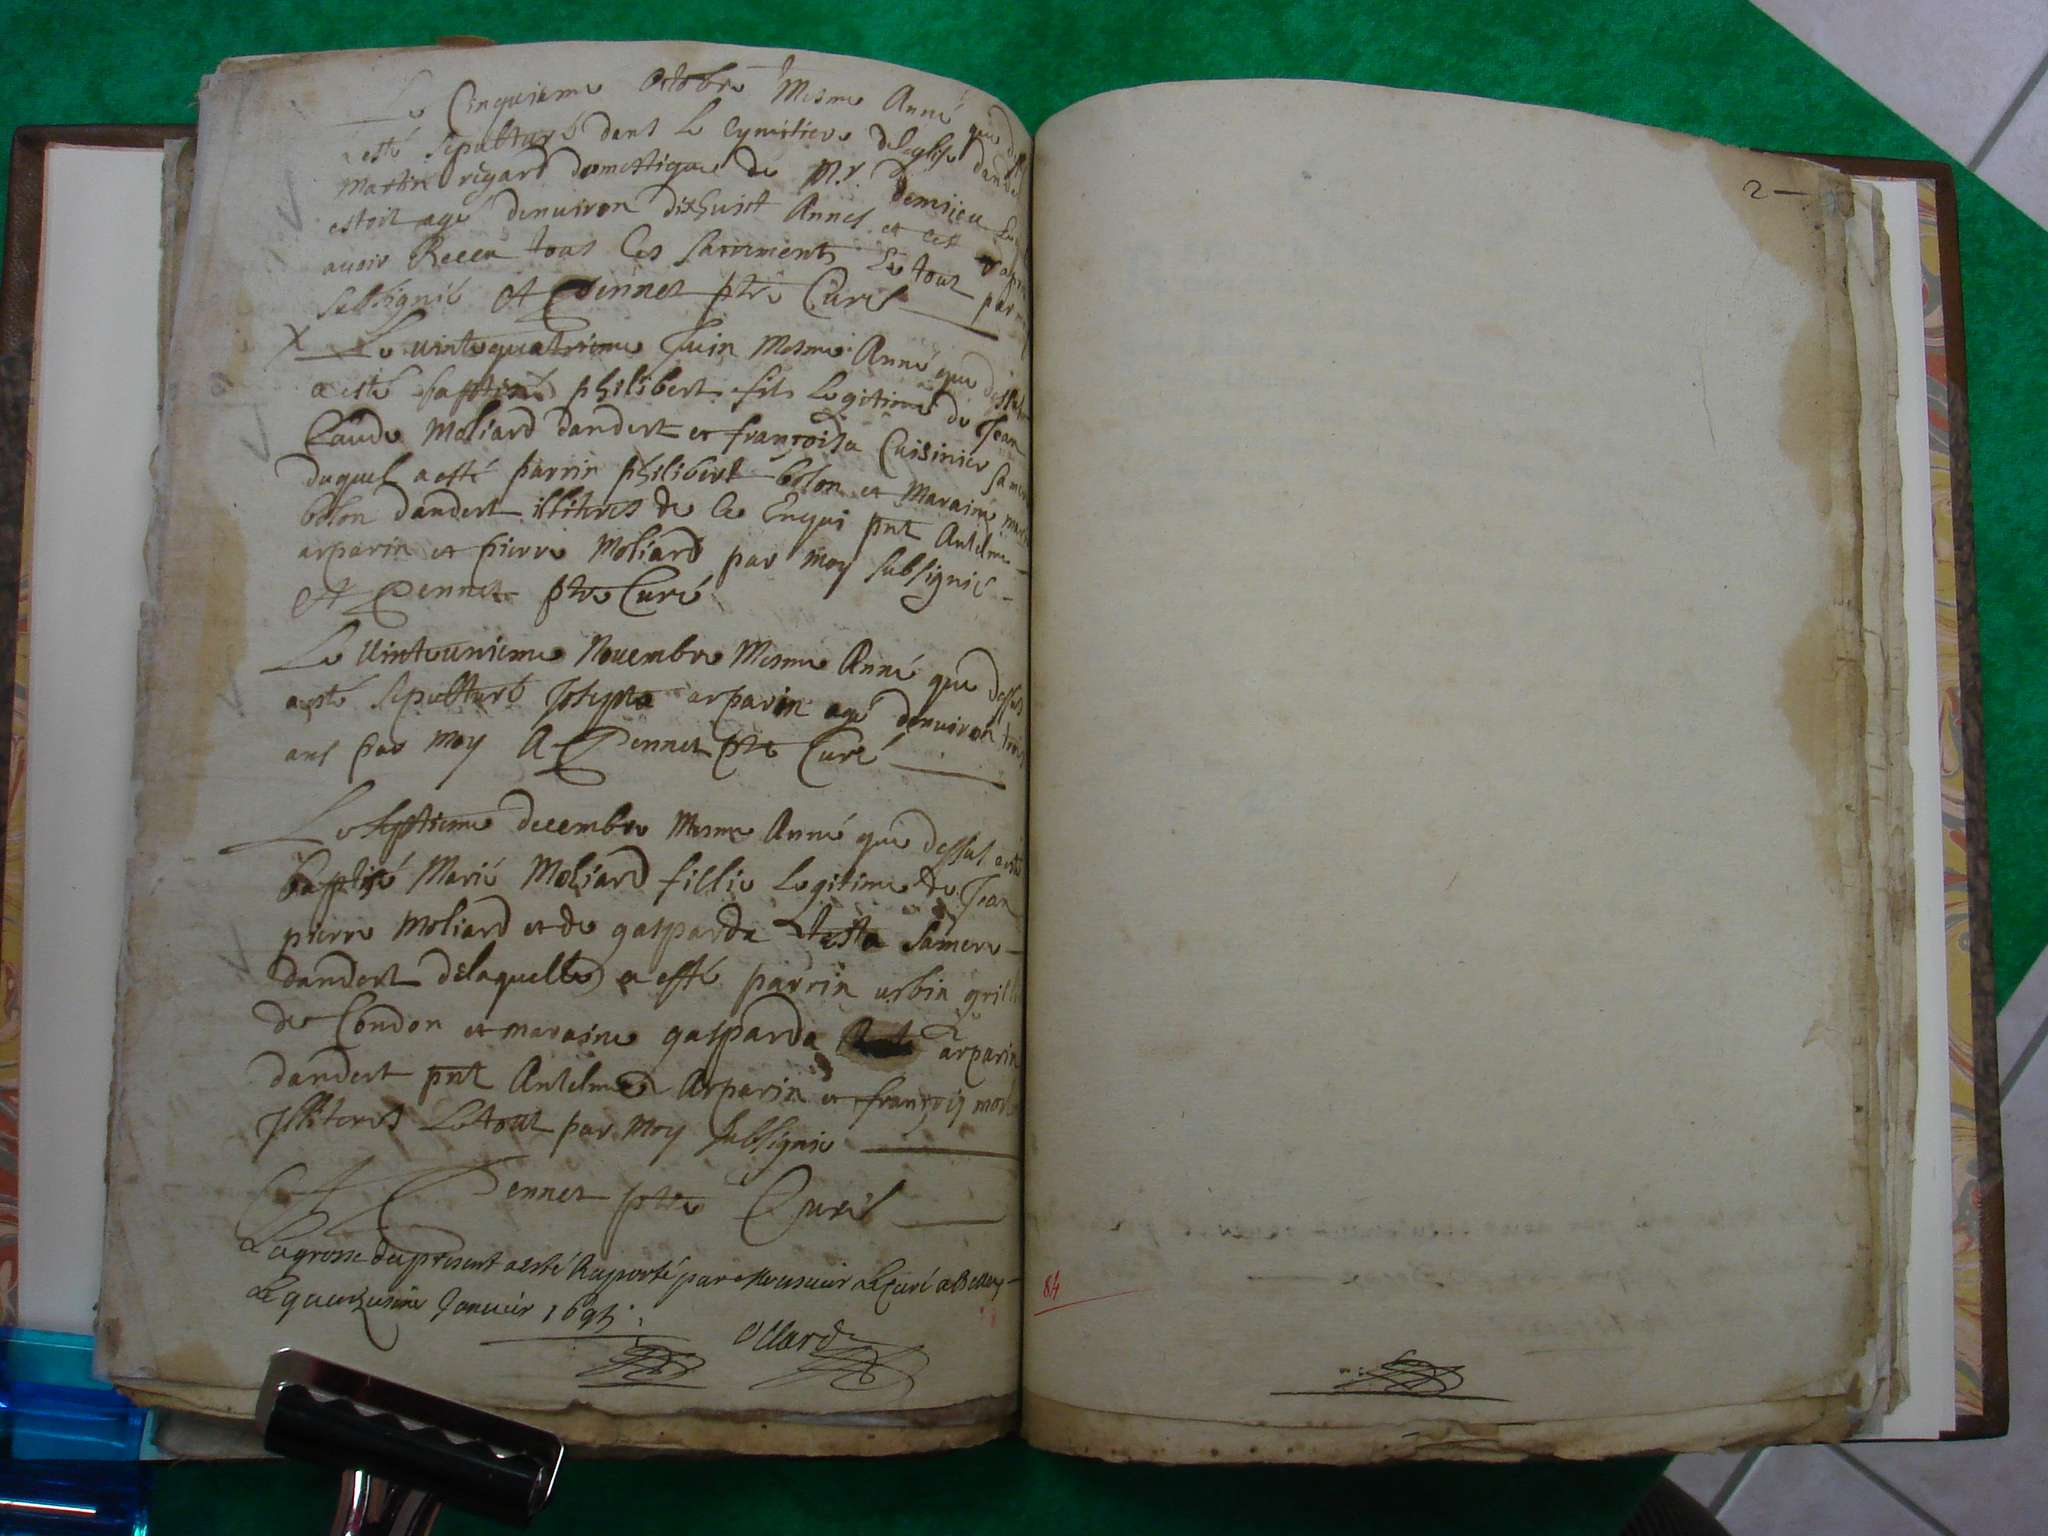 Le Cinquieme Octobre Mesme Anné que
a esté sepulturé dans le Cymitiere deleglise dandert
Martin regard domestique de Mr. Demrieu
estoit agé denuiron dixhuict Annes et cest
auoir Receu tous les Sacrements Le tout par
subsignié A Pennet ptre Curé
X Le uintequatrieme Juin Mesme Anné que dessus
a esté baptisé philibert fils Legitime de Jean
Claude Moliard dandert et françoisa Cuisinier sa mere
duquel a esté parrin philibert bolon et Maraine
bolon dandert illiteres de ce Enquis pnt Antelme
arparin et pierre Moliard par moy subsignié
A Pennet ptre Curé
Le Uinteunieme Nouembre Mesme Anné que dessus
a esté sepulturé Josepta arparin agé denuiron trois
ans par moy A Pennet ptre Curé
Le septieme decembre Mesme Anné que dessus a esté
baptisé Marie Moliard fillie Legitime de Jean
pierre Moliard et de gasparda testa sa mere
dandert delaquelle a esté parrin urbin
de Condon et maraine gasparda arparin
dandert pnt Antelme Arparin et françois
Jlliteres Le tout par Moy subsignié
A Pennet ptre Curé
La grosse du present a esté Raporté par Monsieur Le Curé a Belley
Le quinzieme Januier 169
Ollard
2
84